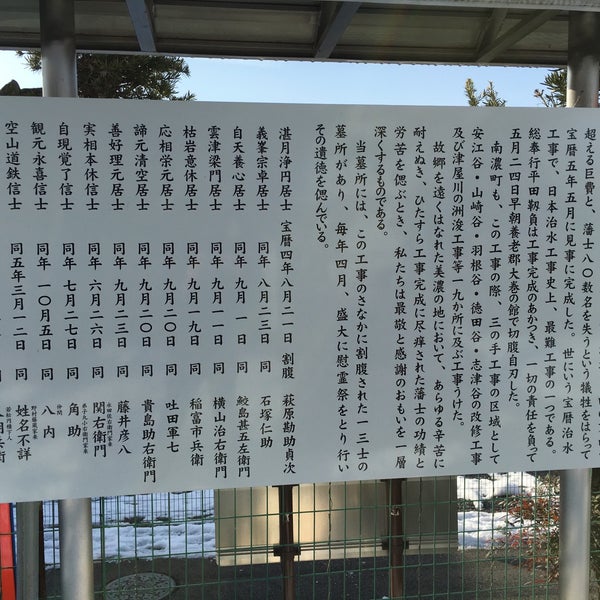 超える巨費と、藩士八〇数名を失うという犠牲をはらって
宝暦五年五月に見事に完成した。世にいう宝暦治水
工事で、日本治水工事史上、最難工事の一つである。
総奉行平田靱負は工事完成のあかつき、一切の責任を負って
五月二四日早朝養老郡大巻の館で切腹自刃した。
南濃町も、この工事の際、三の手工事の区域として
安江谷・山崎谷・羽根谷・徳田谷・志津谷の改修工事
及び津屋川の洲浚工事等一九か所に及ぶ工事うけた。
故郷を遠くはなれた美濃の地において、あらゆる辛苦に
耐えぬき、ひたすら工事完成に尽瘁された藩士の功績と
労苦を偲ぶとき、私たちは最敬と感謝のおもいを一層
深くするものである。
当墓所には、この工事のさなかに割腹された一三士の
墓所があり、毎年四月、盛大に慰霊祭をとり行い
その遺徳を偲んでいる。
湛月浄円居士 宝暦四年八月二一日 割腹 萩原勘助貞次
義峯宗卓居士 同年 八月二三日 同 石塚仁助
自天養心居士 同年 九月 一日 同 鮫島甚五左衛門
雲津梁門居士 同年 九月 一日 同 横山治右衛門
枯岩意休居士 同年 九月一九日 同 稲富市兵衛
応相栄元居士 同年 九月二〇日 同 吐田軍七
諦元清空居士 同年 九月二〇日 同 貴島助右衛門
善好理元居士 同年 九月二三日 同 藤井彦八
実相本休信士 同年 六月二六日 同 関右衛門
自現覚了信士 同年 七月二七日 同 角助
観元永喜信士 同年 一〇月五日 同 仲間 八内
空山道鉄信士 同五年三月一二日 同 姓名不詳